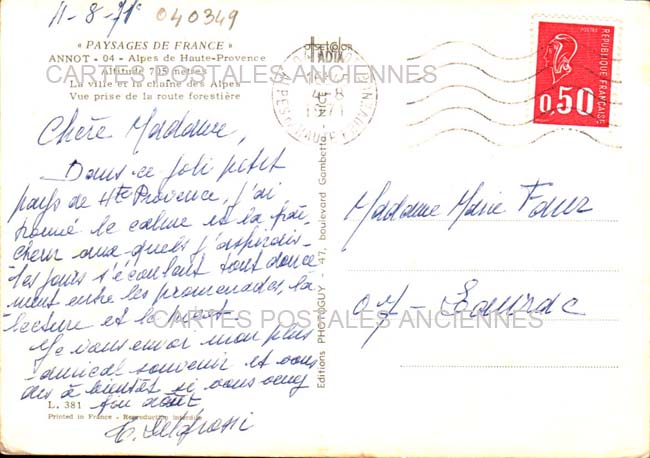 11-8-71
040349
« PAYSAGES DE FRANCE »
ANNOT - 04 - Alpes de Haute-Provence
Altitude 705 mètres
La ville et la chaîne des Alpes
Vue prise de la route forestière
CARTES POSTALES ANCIENNES
Chère Madame,
Dans ce joli petit
pays de Hte Provence, j'ai
trouvé le calme et la
aux quels j'aspirais
Les jours s'écoulent tout douce-
ment entre les promenades, la
lecture et le
Je vous envoi mon plus
amical souvenir et vous
dis à bientôt si vous venez
fin août
L. 381
Printed in France - Reproduction interdite
Editions PHOTOGUY - 47, boulevard Gambetta - NICE
RÉPUBLIQUE FRANÇAISE
POSTES
0,50
Madame Marie Faur
07 -
CARTES POSTALES ANCIENNES